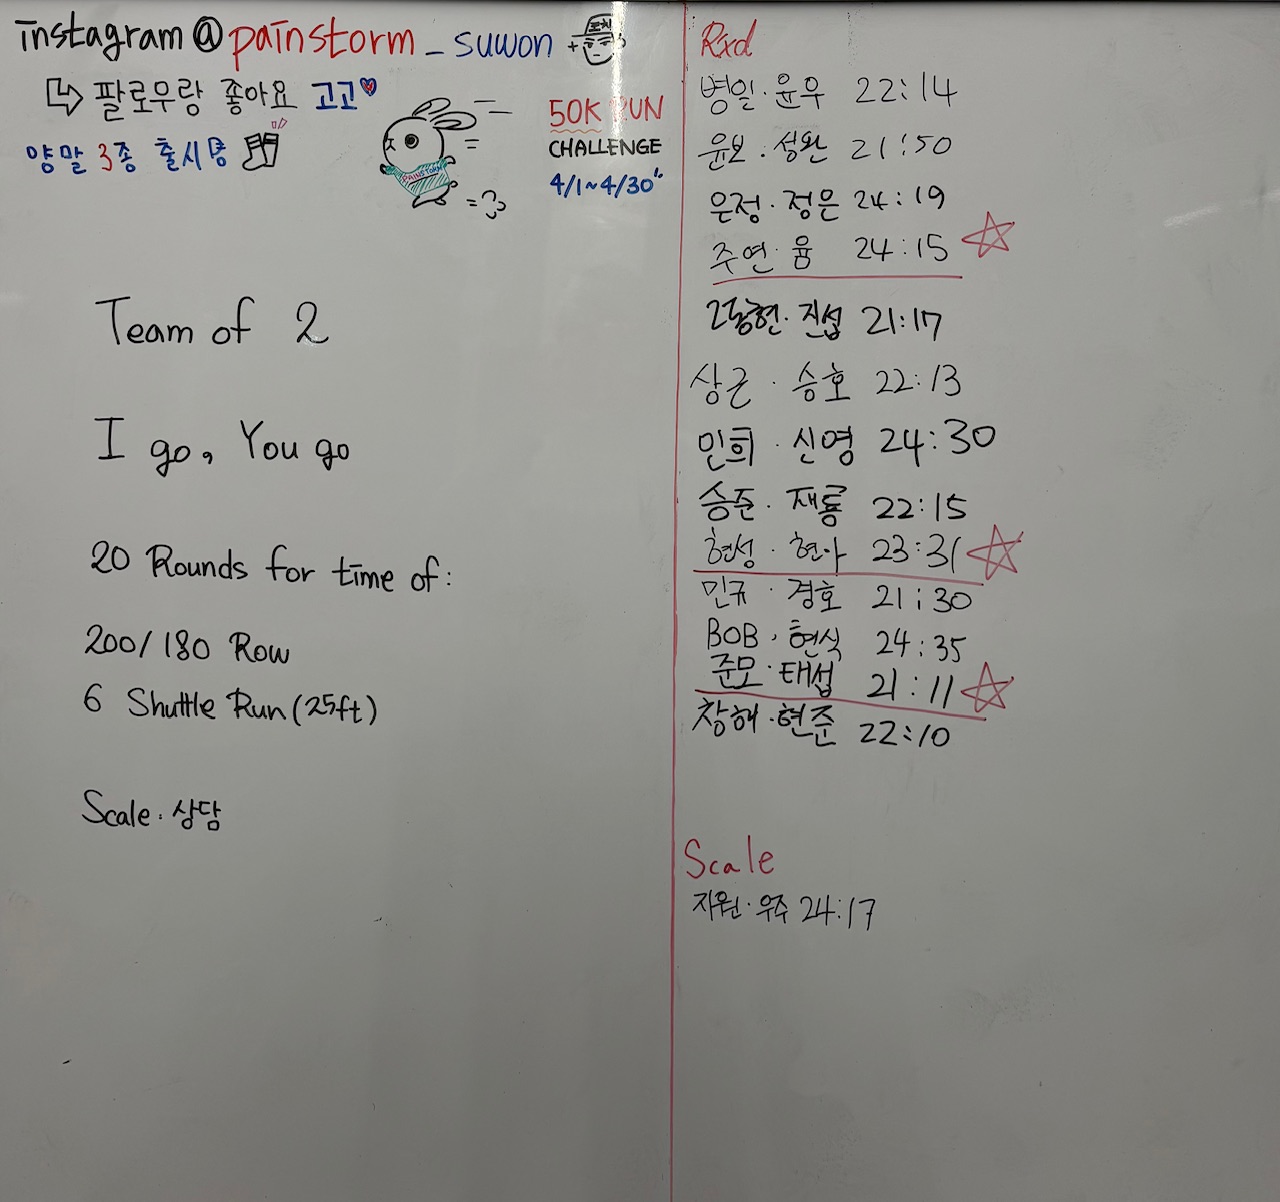 instagram@painstorm_suwon
코치
팔로우랑 좋아요 고고
양말 3종 출시
PAINSTORM
50K RUN
CHALLENGE
4/1~4/30
Team of 2
I go, You go
20 Rounds for time of:
200/180 Row
6 Shuttle Run (25ft)
Scale. 상담
Rxd
병일·윤우 22:14
윤보·성완 21:50
은정·정은 24:19
주연·윰 24:15
동현·진섭 21:17
상근·승호 22:13
민희·신영 24:30
승준·재룡 22:15
현성·현아 23:31
민규·경호 21:30
BOB·현식 24:35
준모·태섭 21:11
창해·현준 22:10
Scale
지원·우주 24:17